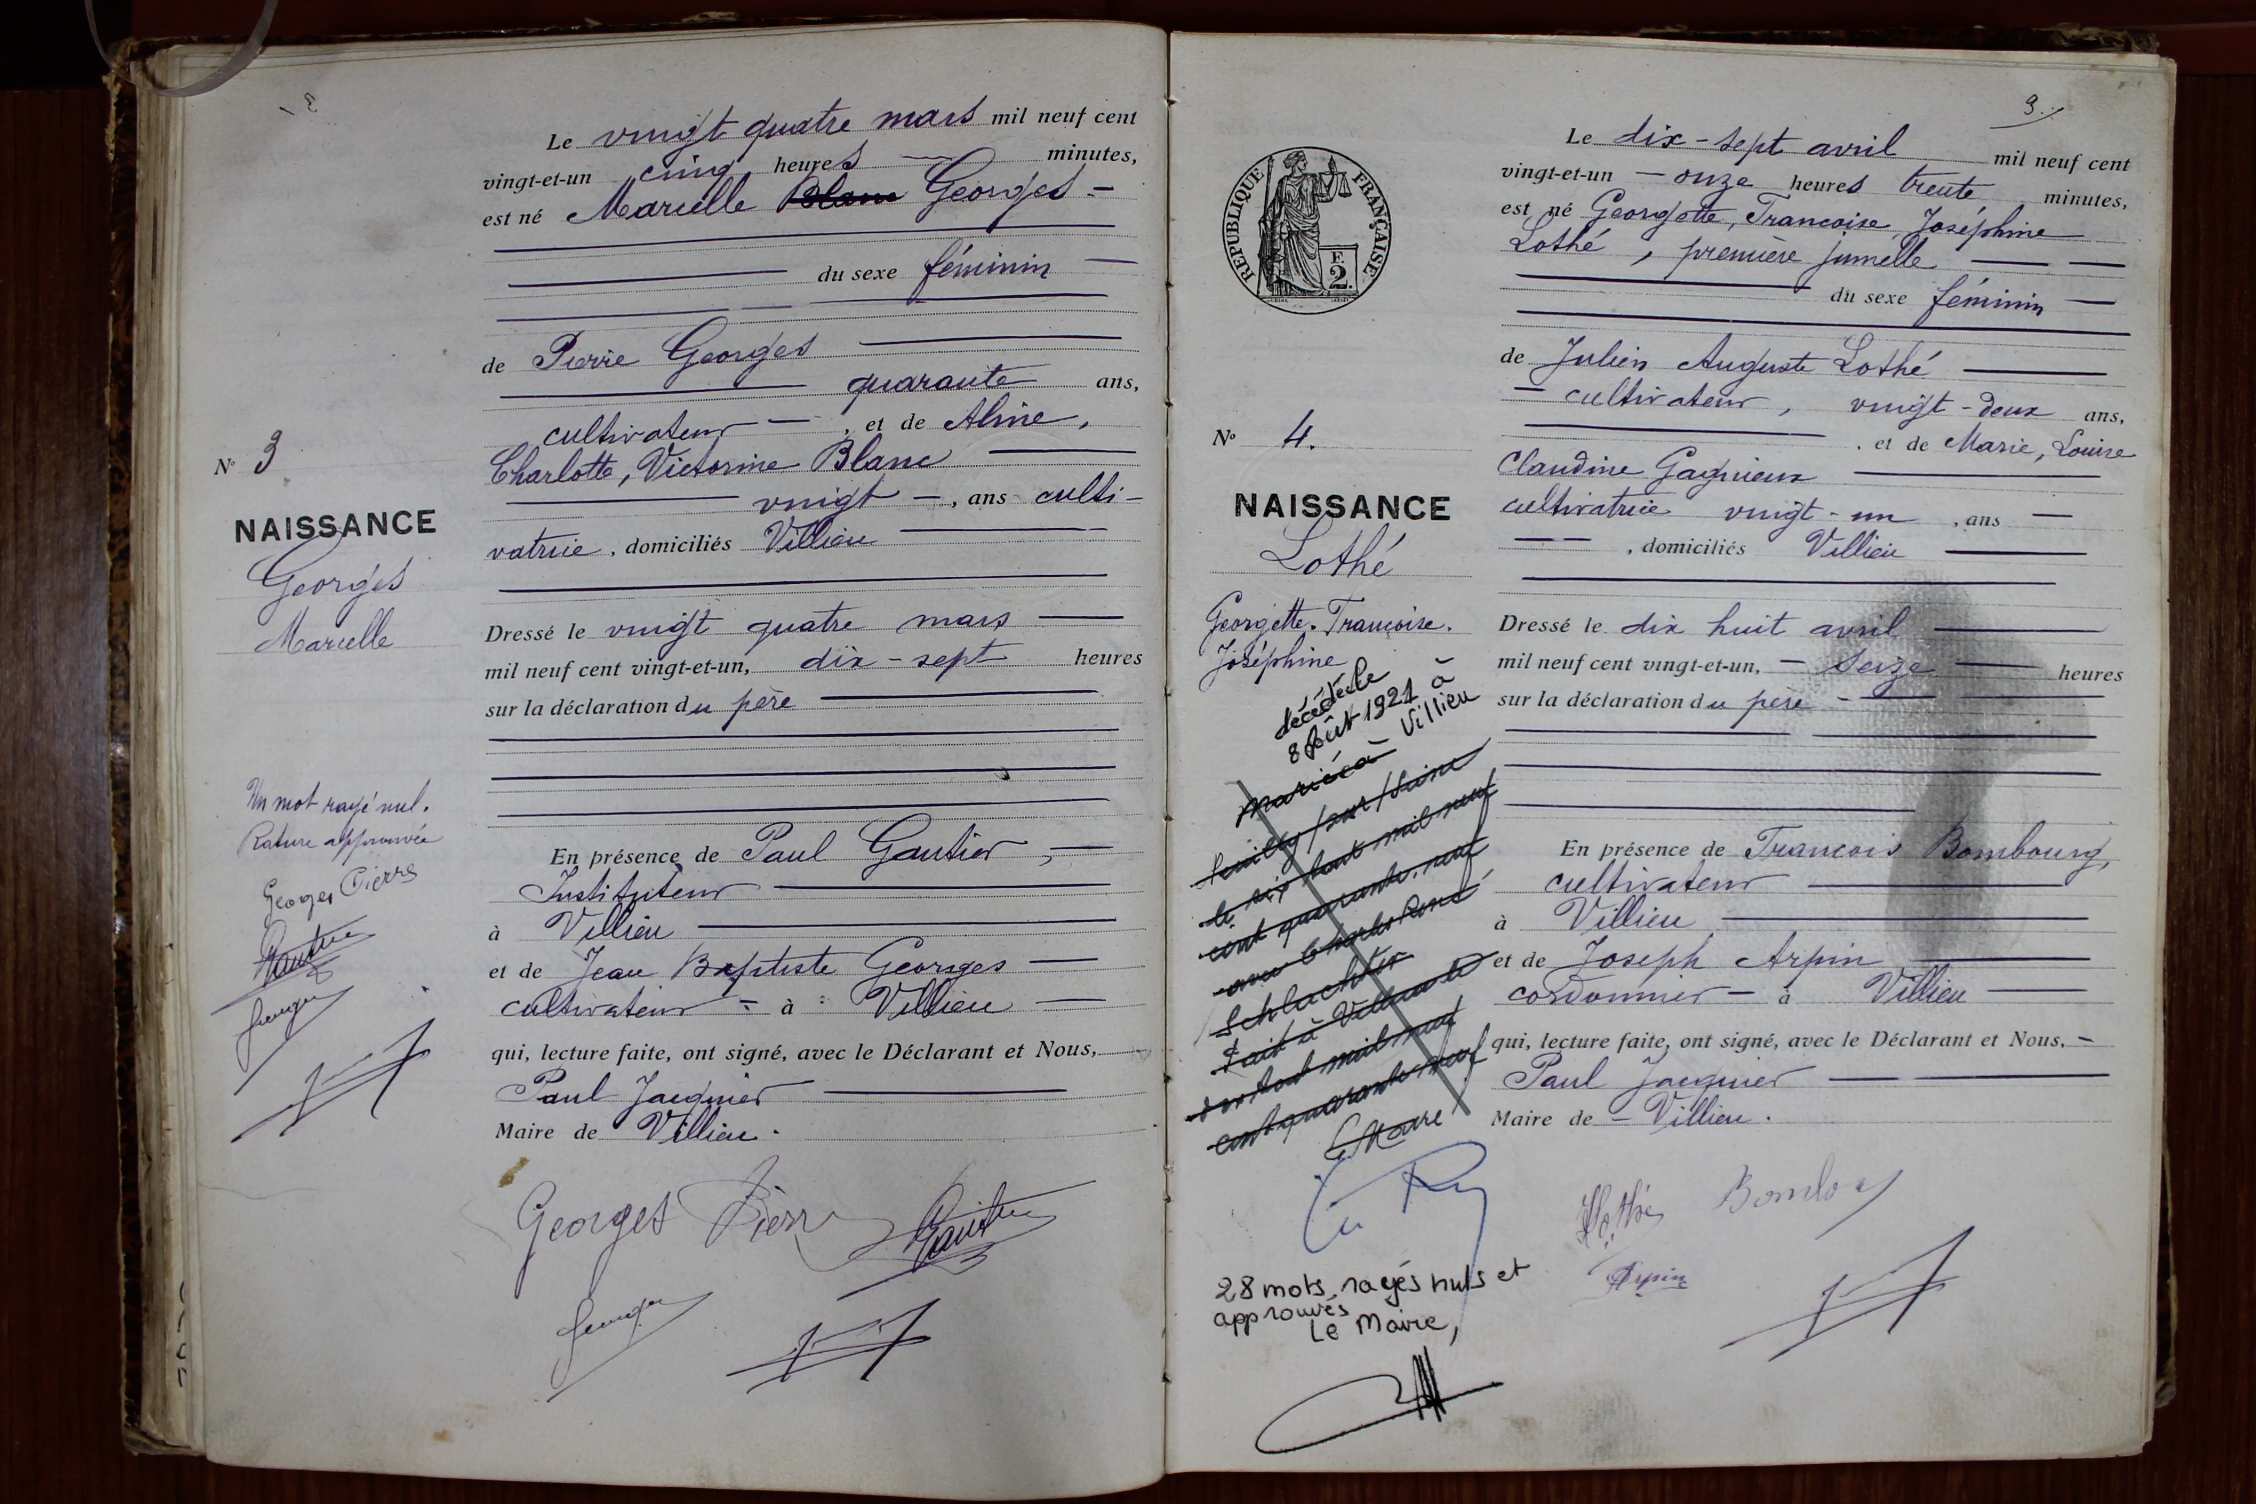 Le vingt quatre mars mil neuf cent
vingt-et-un cinq heures — minutes,
est né Marcelle Blanc Georges —
du sexe féminin —
de Pierre Georges
quarante ans,
cultivateur — , et de Aline,
Charlotte, Victorine Blanc
vingt — , ans culti-
vatrice , domiciliés Villieu
Dressé le vingt quatre mars
mil neuf cent vingt-et-un, dix-sept heures
sur la déclaration du père
En présence de Paul Gautier , —
Instituteur
à Villieu
et de Jean Baptiste Georges —
cultivateur = à : Villieu —
qui, lecture faite, ont signé, avec le Déclarant et Nous,
Paul Jacquier
Maire de Villieu .
Georges Pierre
N° 3
NAISSANCE
Georges
Marcelle
Un mot rayé nul.
Rature approuvée
Georges Pierre
3.
REPUBLIQUE FRANÇAISE
E
2.
Le dix-sept avril mil neuf cent
vingt-et-un — onze heures trente minutes,
est né Georgette, Francoise Joséphine
Lothé , première jumelle — —
du sexe féminin —
de Julien Auguste Lothé
— cultivateur , vingt-deux ans,
. et de Marie, Louise
Claudine Gagnieux
cultivatrice vingt-un , ans —
— — , domiciliés Villieu
Dressé le dix huit avril
mil neuf cent vingt-et-un, — seize — heures
sur la déclaration du père -
En présence de Francois Bombourg,
cultivateur
à Villieu
et de Joseph Arpin
cordonnier — à Villieu
qui, lecture faite, ont signé, avec le Déclarant et Nous, —
Paul Jacquier
Maire de — Villieu .
Lothé
Arpin
N° 4.
NAISSANCE
Lothé
Georgette. Françoise.
Joséphine
décédée le
8 Août 1921 à
Villieu
mariée à
/sur/Seine
le six août mil neuf
cent quarante-neuf
avec Charles René
Schlachter
Fait à Villieu le
août mil neuf
cent quarante neuf
Maire
28 mots rayés nuls et
approuvés
Le Maire,